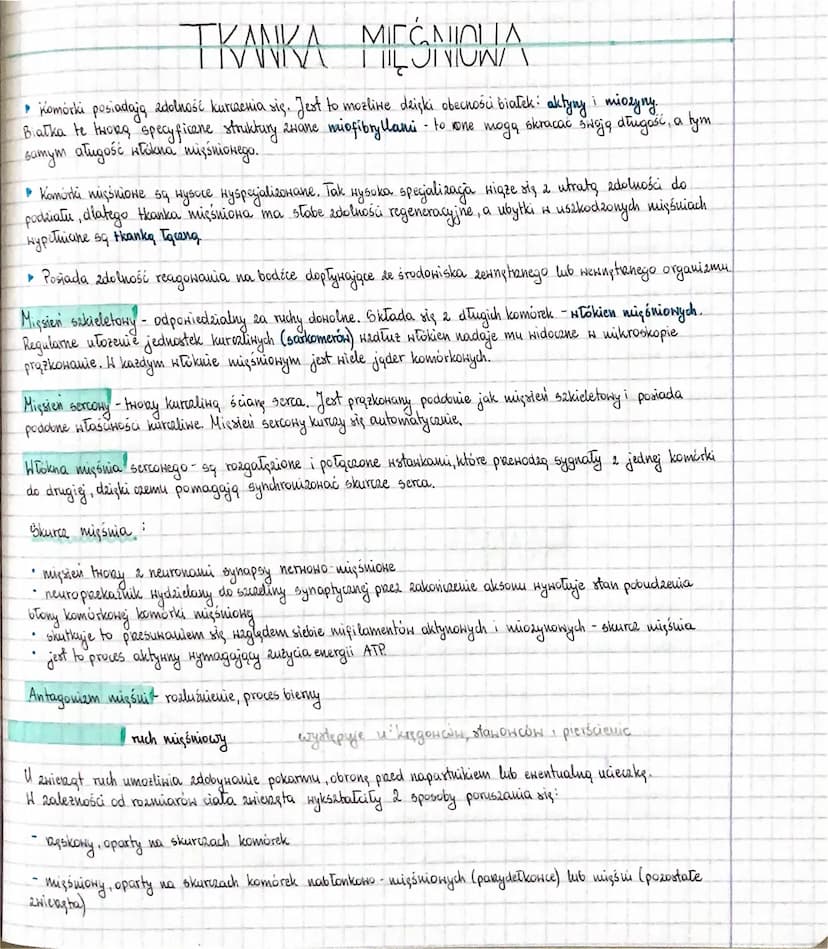 TKANKA MIĘŚNIOWA
Komórki posiadają zdolność kurczenia się. Jest to możliwe dzięki obecności białek: aktyny i miozyny.
Białka te tworzą specyficzne struktury zwane miofibryllami - to one mogą skracać swoją długość, a tym
samym długość włókna mięśniowego.
Komórki mięśniowe są wysoce wyspecjalizowane. Tak wysoka specjalizacja wiąże się z utratą zdolności do
podziału, dlatego tkanka mięśniowa ma słabe zdolności regeneracyjne, a ubytki w uszkodzonych mięśniach
wypełniane są tkanką łączną
Posiada zdolność reagowania na bodźce dopływające ze środowiska zewnętrznego lub wewnętrznego organizmu
Mięsień szkieletowy - odpowiedzialny za ruchy dowolne. Składa się z długich komórek - włókien mięśniowych.
Regularne ułożenie jednostek kurczliwych (sarkomerów) wzdłuż włókien nadaje mu widoczne w mikroskopie
prążkowanie. W każdym włóknie mięśniowym jest wiele jąder komórkowych.
Mięsień sercowy - tworzy kurczliwą ścianę serca. Jest prążkowany podobnie jak mięsień szkieletowy i posiada
podobne właściwości kurczliwe. Mięsień sercowy kurczy się automatycznie.
Włókna mięśnia sercowego - są rozgałęzione i połączone wstawkami, które przewodzą sygnały z jednej komórki
do drugiej, dzięki czemu pomagają synchronizować skurcze serca.
Skurcz mięśnia :
• mięsień tworzy z neuronami synapsy nerwowo-mięśniowe
• neuroprzekaźnik wydzielany do szczeliny synaptycznej przez zakończenie aksonu wywołuje stan pobudzenia
błony komórkowej komórki mięśniowej
• skutkuje to przesuwaniem się względem siebie mifilamentów aktynowych i miozynowych - skurcz mięśnia
• jest to proces aktywny wymagający zużycia energii ATP.
Antagonizm mięśni - rozluźnienie, proces bierny
ruch mięśniowy występuje u kręgowców, stawonców i pierścienic
U zwierząt ruch umożliwia zdobywanie pokarmu, obronę przed napastnikiem lub ewentualną ucieczkę.
W zależności od rozmiarów ciała zwierzęta wykształciły 2 sposoby poruszania się:
- rzęskowy, oparty na skurczach komórek
- mięśniowy, oparty na skurczach komórek nabłonkowo - mięśniowych (parzydełkowce) lub mięśni (pozostałe
zwierzęta)